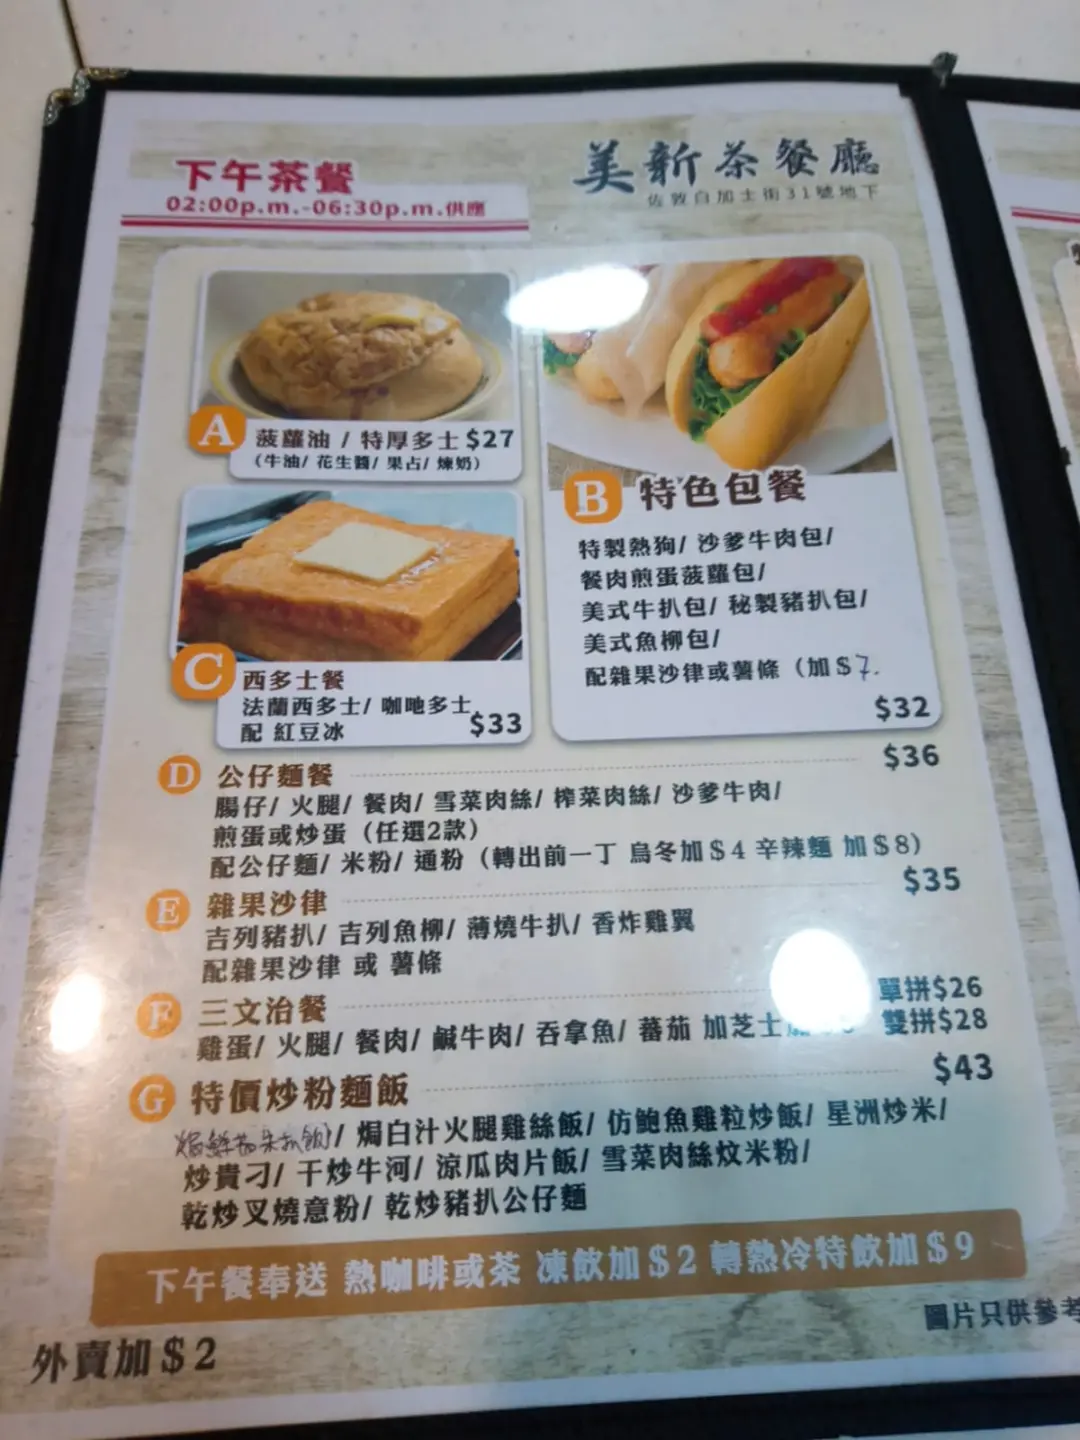 下午茶餐
02:00p.m.-06:30p.m.供應
美新茶餐廳
佐敦白加士街31號地下
A 菠蘿油 / 特厚多士 $27
(牛油/ 花生醬/ 果占/ 煉奶)
B 特色包餐
特製熱狗/ 沙爹牛肉包/
餐肉煎蛋菠蘿包/
美式牛扒包/ 秘製豬扒包/
美式魚柳包/
配雜果沙律或薯條 (加$7.
$32
C 西多士餐
法蘭西多士/ 咖吔多士
配 紅豆冰 $33
D 公仔麵餐 $36
腸仔/ 火腿/ 餐肉/ 雪菜肉絲/ 榨菜肉絲/ 沙爹牛肉/
煎蛋或炒蛋 (任選2款)
配公仔麵/ 米粉/ 通粉 (轉出前一丁 烏冬加$4 辛辣麵 加$8)
E 雜果沙律 $35
吉列豬扒/ 吉列魚柳/ 薄燒牛扒/ 香炸雞翼
配雜果沙律 或 薯條
F 三文治餐 單拼$26
雞蛋/ 火腿/ 餐肉/ 鹹牛肉/ 吞拿魚/ 蕃茄 加芝士 雙拼$28
G 特價炒粉麵飯 $43
焗鮮茄朱扒飯/ 焗白汁火腿雞絲飯/ 仿鮑魚雞粒炒飯/ 星洲炒米/
炒貴刁/ 干炒牛河/ 涼瓜肉片飯/ 雪菜肉絲炆米粉/
乾炒叉燒意粉/ 乾炒豬扒公仔麵
下午餐奉送 熱咖啡或茶 凍飲加$2 轉熱冷特飲加$9
圖片只供參考
外賣加$2